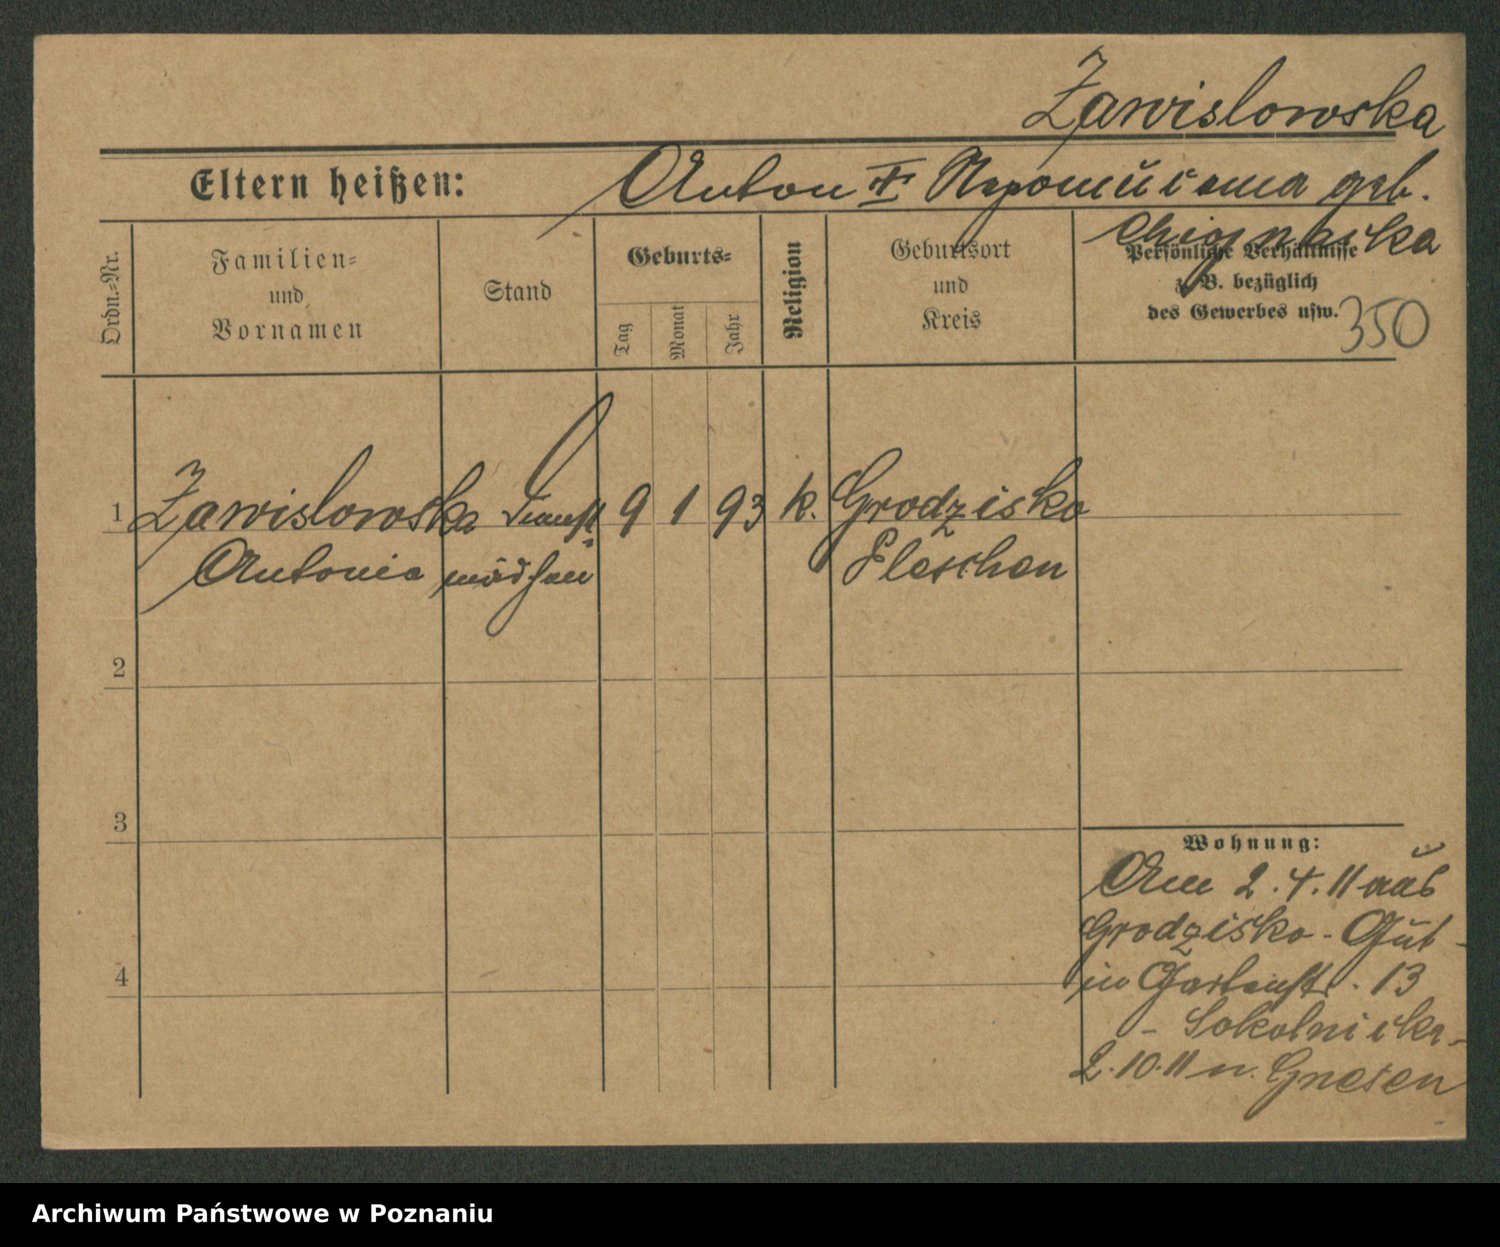 Zawislowska
Eltern heißen: Anton u. Nepomucena geb.
Ordn.-Nr.
Familien-
und
Vornamen
Stand
Geburts-
Tag
Monat
Jahr
Religion
Geburtsort
und
Kreis
Persönliche Verhältnisse
z. B. bezüglich
des Gewerbes usw.
350
1 Zawislowska Dienst 9 1 93 k. Grodzisko
Antonie mädchen Pleschen
2
3
4
Wohnung:
Am 2.4.11 aus
Grodzisko-Gut-
in Gartenstr. 13
- Sokolnicka -
2.10.11 n. Gnesen
Archiwum Państwowe w Poznaniu